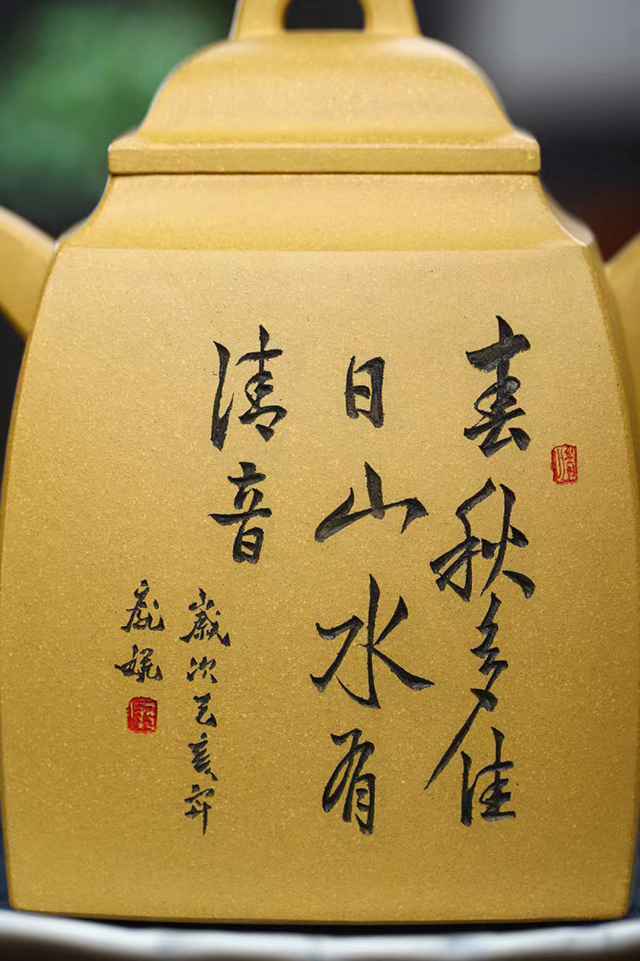 春秋多佳
日山水有
清音
歲次己亥